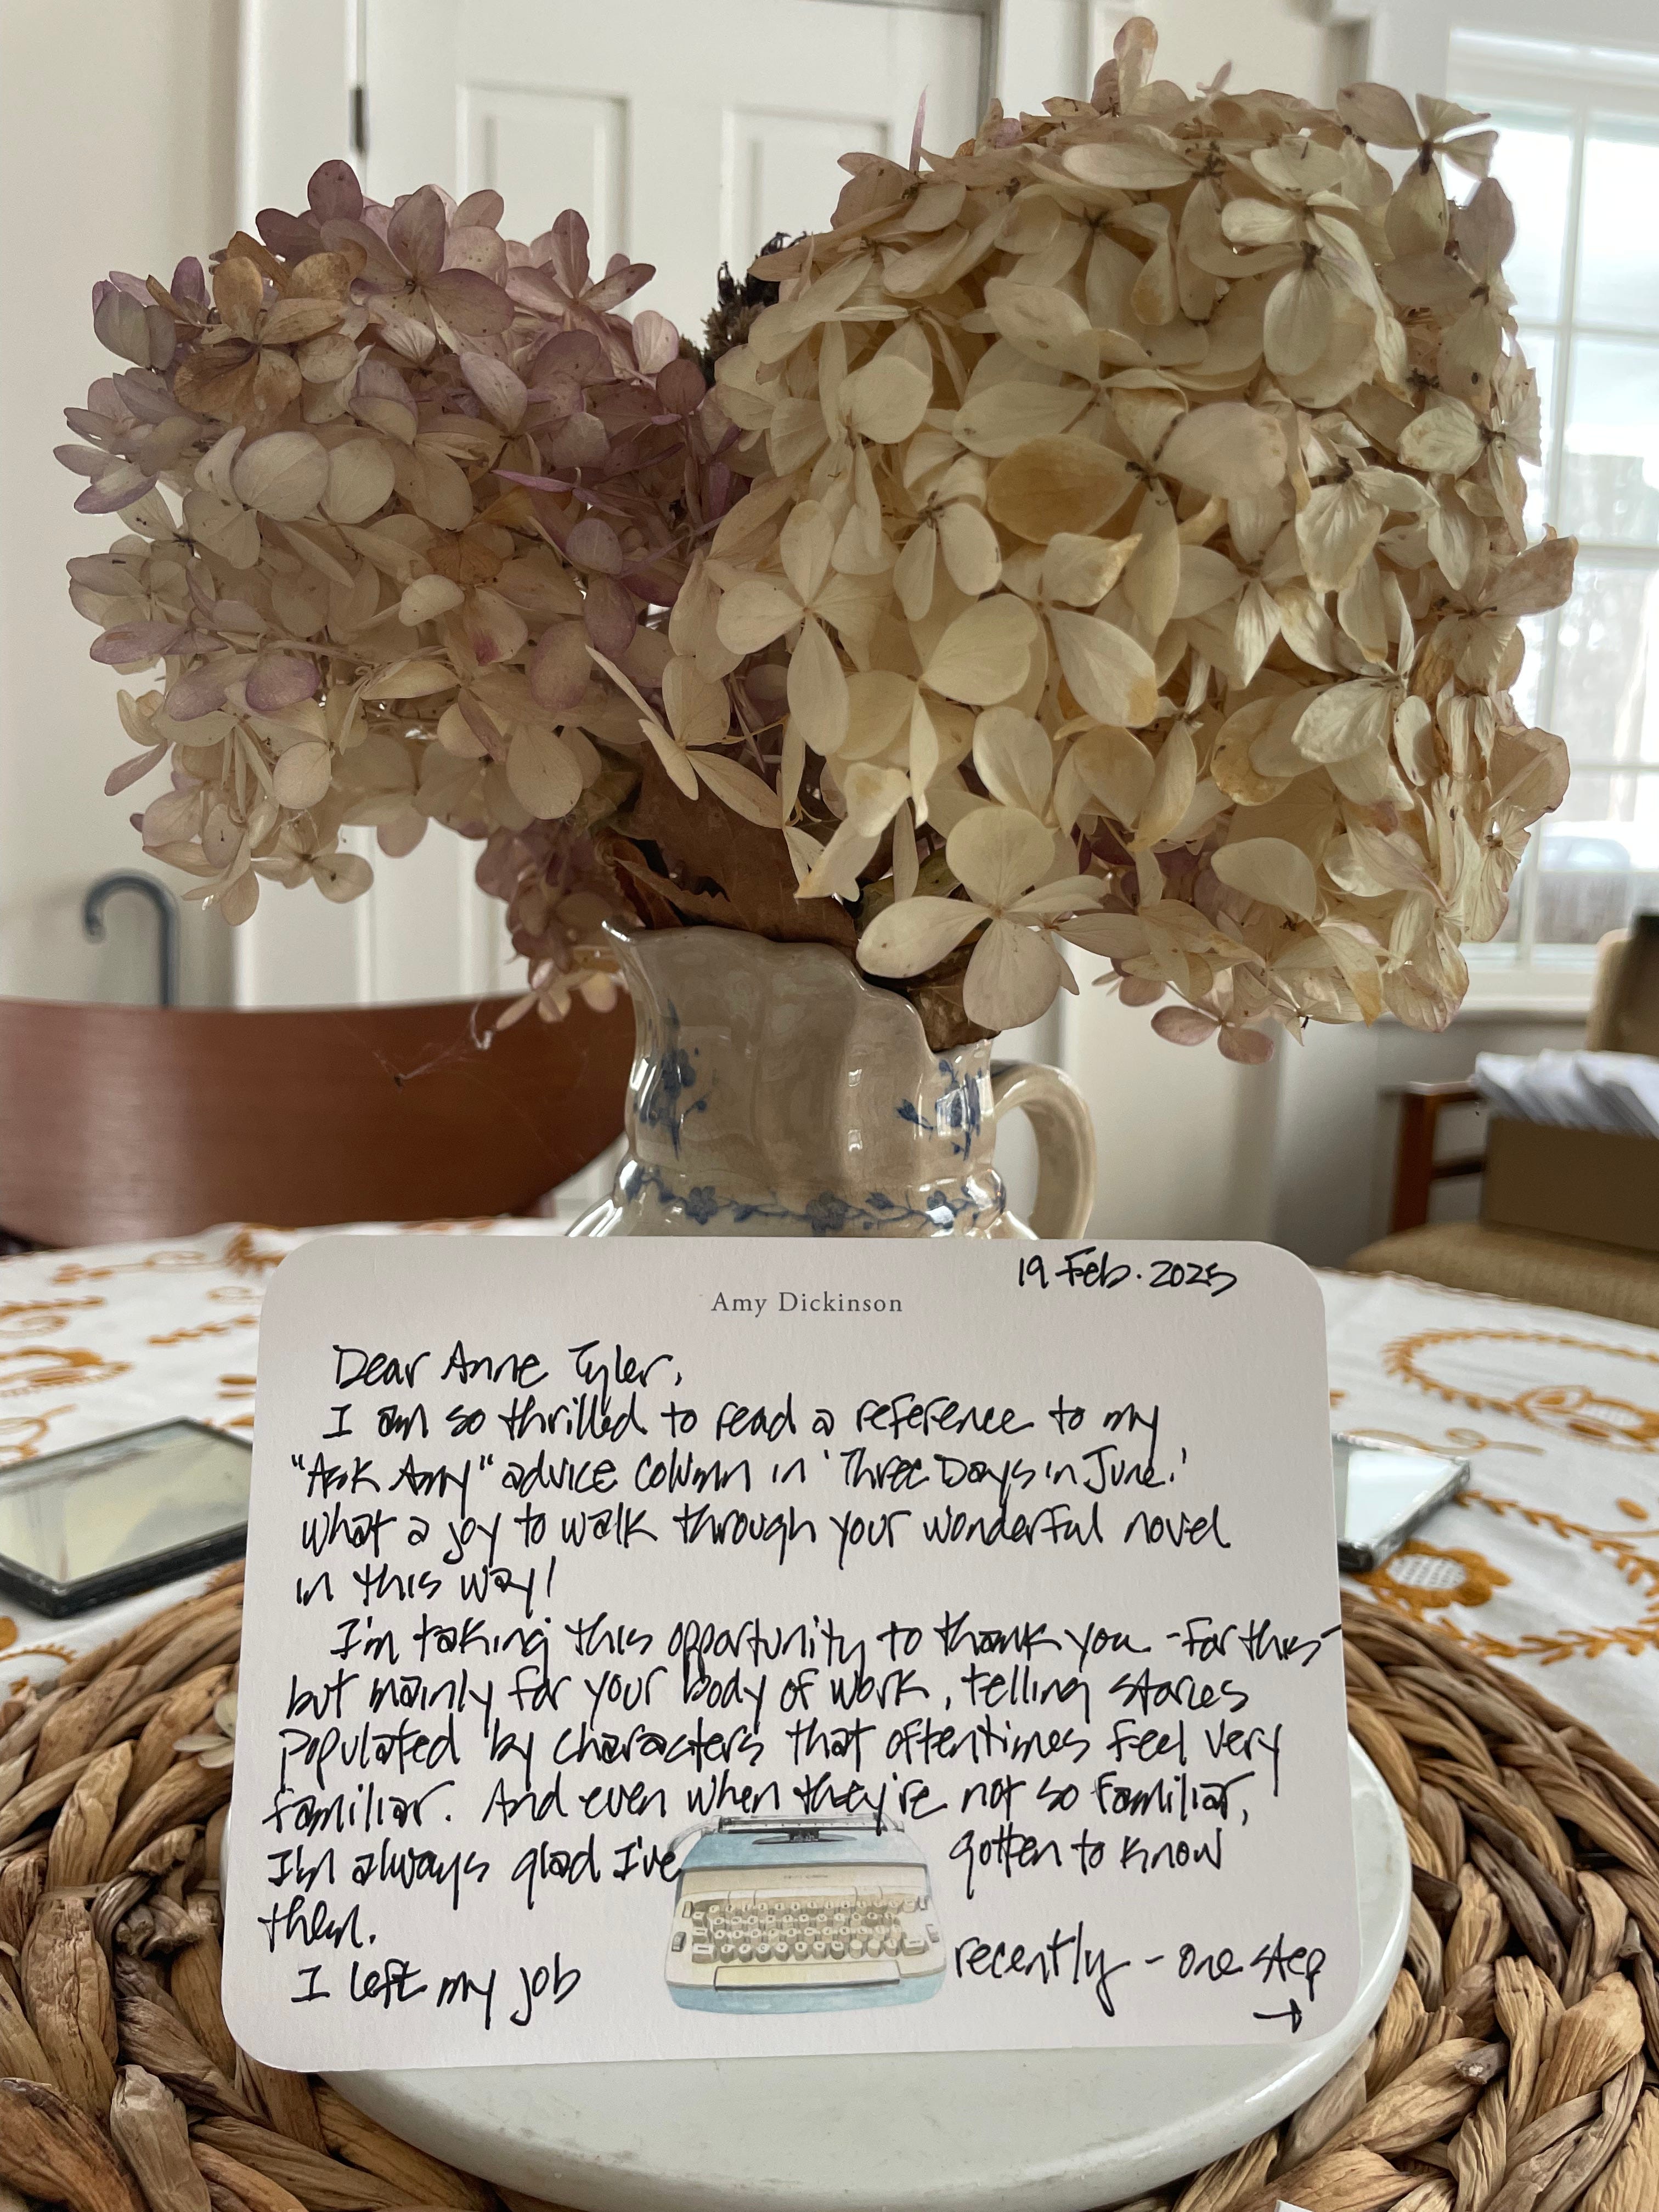 19 Feb. 2025
Amy Dickinson
Dear Anne Tyler,
I am so thrilled to read a reference to my
"Ask Amy" advice column in 'Three Days in June.'
What a joy to walk through your wonderful novel
in this way!
I'm taking this opportunity to thank you - for this -
but mainly for your body of work, telling stories
populated by characters that oftentimes feel very
familiar. And even when they're not so familiar,
I'm always glad I've gotten to know
them.
I left my job recently - one step
→